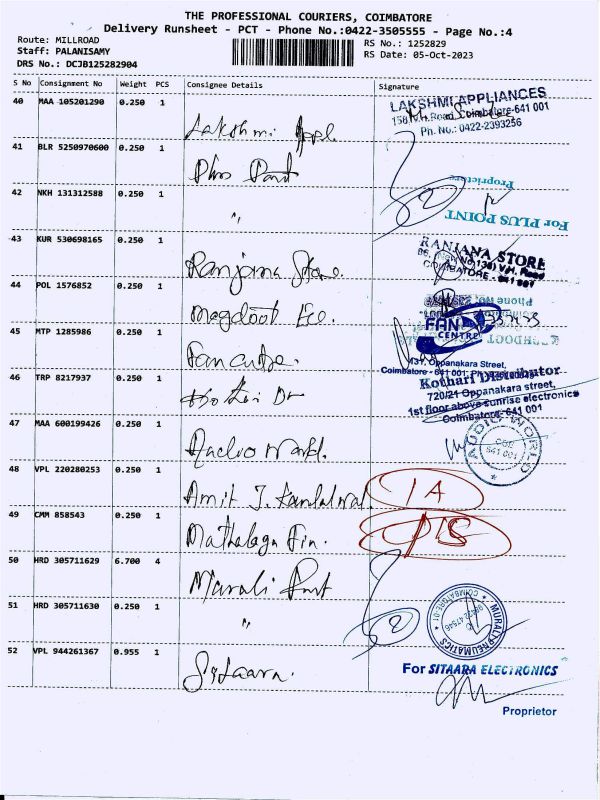 THE PROFESSIONAL COURIERS, COIMBATORE
Delivery Runsheet - PCT - Phone No.:0422-3505555 - Page No.:4
Route: MILLROAD
RS No.: 1252829
Staff: PALANISAMY
RS Date: 05-Oct-2023
DRS No.: DCJB125282904
S No Consignment No Weight PCS Consignee Details Signature
40 MAA 105201290 0.250 1
LAKSHMI APPLIANCES
Coimbatore-641 001
Ph. No.: 0422-2393256
Lakshmi Appl
41 BLR 5250970600 0.250 1
Plus Point
Proprietor
42 NKH 131312588 0.250 1
"
For PLUS POINT
43 KUR 530698165 0.250 1
RANJANA STORE
COIMBATORE - 641 001
Ranjana Store.
44 POL 1576852 0.250 1
Phone No.
FAN CENTRE
45 MTP 1285986 0.250 1
Oppanakara Street,
Coimbatore - 641 001.
46 TRP 8217937 0.250 1
Kothari Distributor
720/21 Oppanakara street,
1st floor above sunrise electronics
Coimbatore-641 001
47 MAA 600199426 0.250 1
AUDIO WORLD
CBE
641 001
48 VPL 220280253 0.250 1
Amit J.
49 CMM 858543 0.250 1
50 HRD 305711629 6.700 4
Murali
51 HRD 305711630 0.250 1
"
MURALI PNEUMATICS
COIMBATORE-01
52 VPL 944261367 0.955 1
Sitaara.
For SITAARA ELECTRONICS
Proprietor